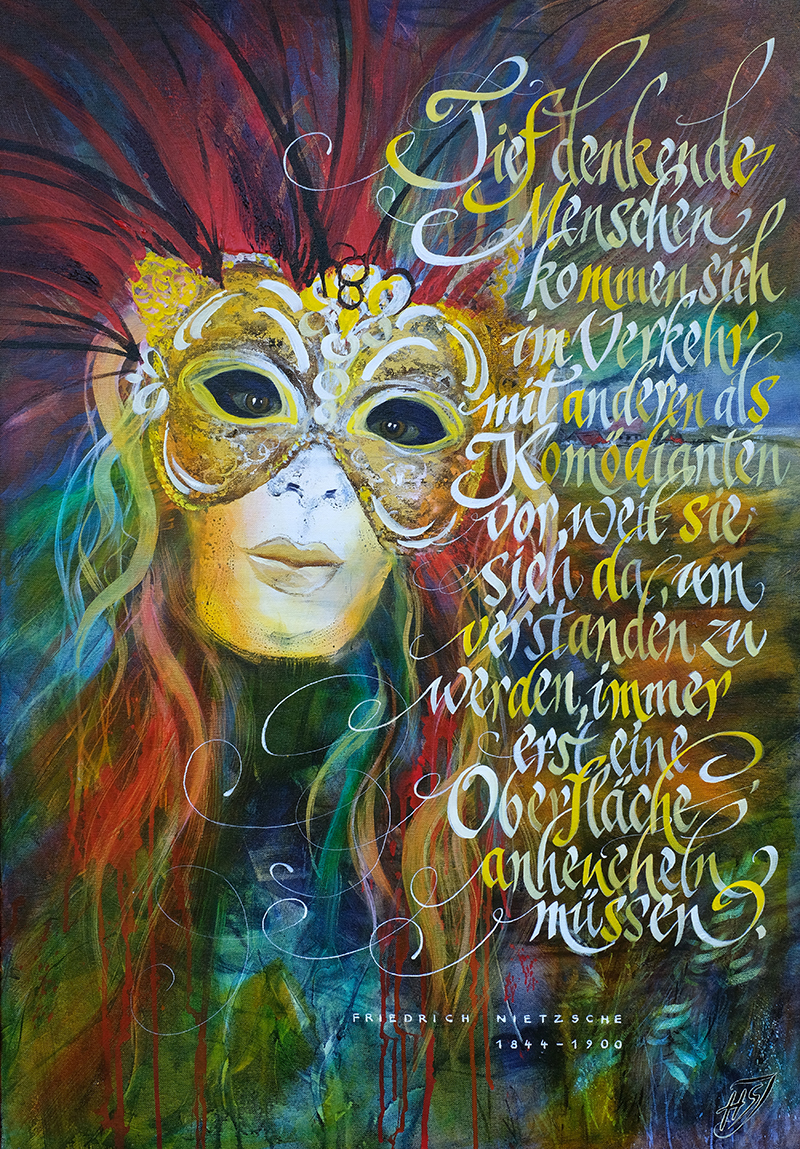 Tief denkende
Menschen
kommen sich
im Verkehr
mit anderen als
Komödianten
vor, weil sie
sich da, um
verstanden zu
werden, immer
erst eine
Oberfläche
anheucheln
müssen.
FRIEDRICH NIETZSCHE
1844-1900
HS